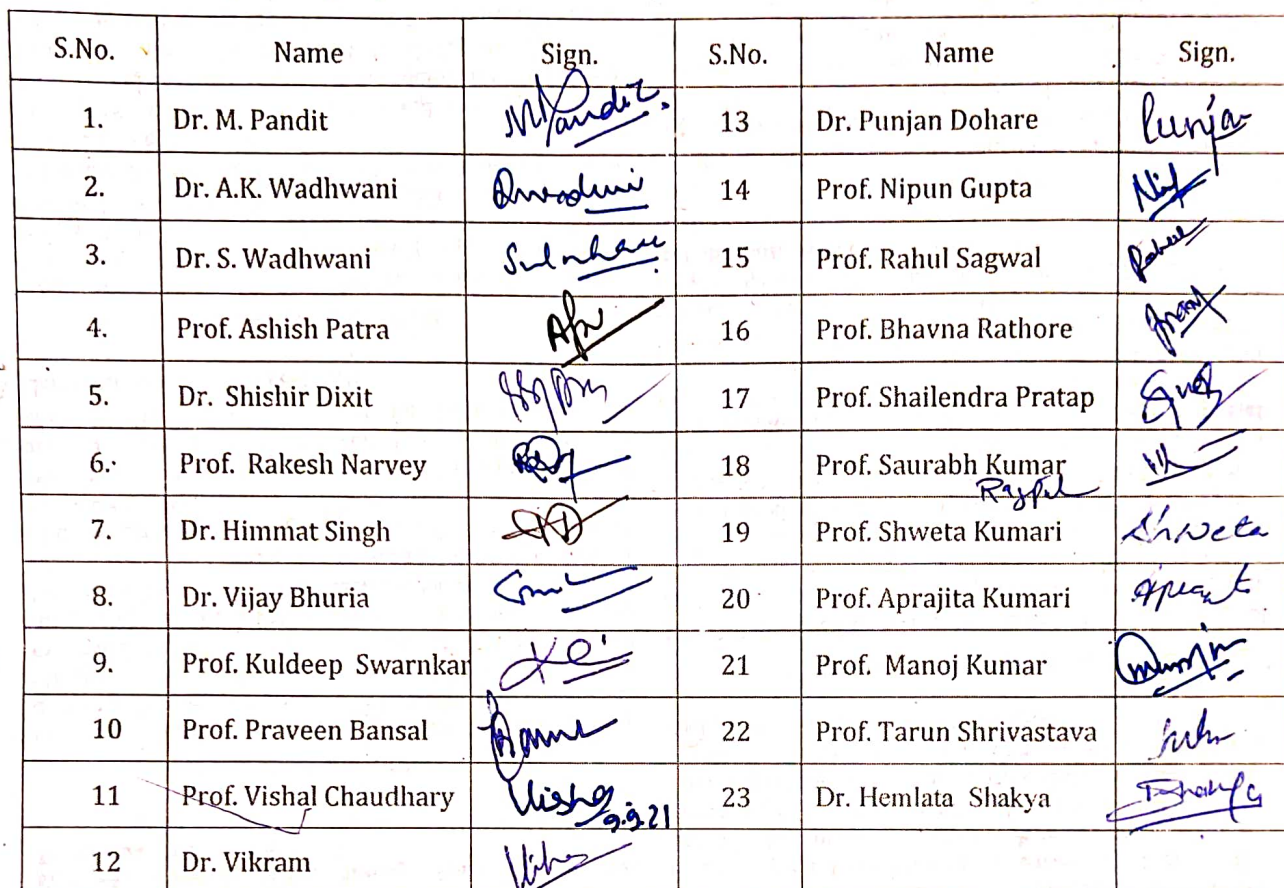 S.No. Name Sign. S.No. Name Sign.
1. Dr. M. Pandit MPandit. 13 Dr. Punjan Dohare Punjan
2. Dr. A.K. Wadhwani 14 Prof. Nipun Gupta
3. Dr. S. Wadhwani 15 Prof. Rahul Sagwal Rahul
4. Prof. Ashish Patra 16 Prof. Bhavna Rathore
5. Dr. Shishir Dixit 17 Prof. Shailendra Pratap
6. Prof. Rakesh Narvey 18 Prof. Saurabh Kumar
Rajput
7. Dr. Himmat Singh 19 Prof. Shweta Kumari Shweta
8. Dr. Vijay Bhuria 20 Prof. Aprajita Kumari
9. Prof. Kuldeep Swarnkar 21 Prof. Manoj Kumar
10 Prof. Praveen Bansal 22 Prof. Tarun Shrivastava
11 Prof. Vishal Chaudhary Vishal 9.9.21 23 Dr. Hemlata Shakya Shakya
12 Dr. Vikram